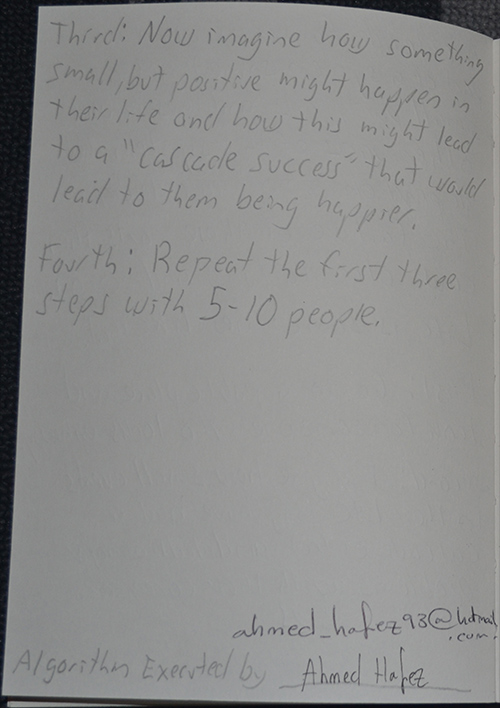 Third: Now imagine how something
small, but positive might happen in
their life and how this might lead
to a "cascade success" that would
lead to them being happier.
Fourth: Repeat the first three
steps with 5-10 people.
ahmed_hafez93@hotmail
.com.
Algorithm Executed by Ahmed Hafez